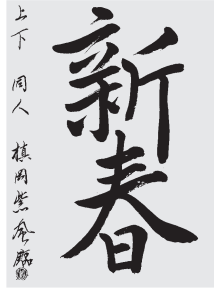 新春
上下 同人 槙岡紫